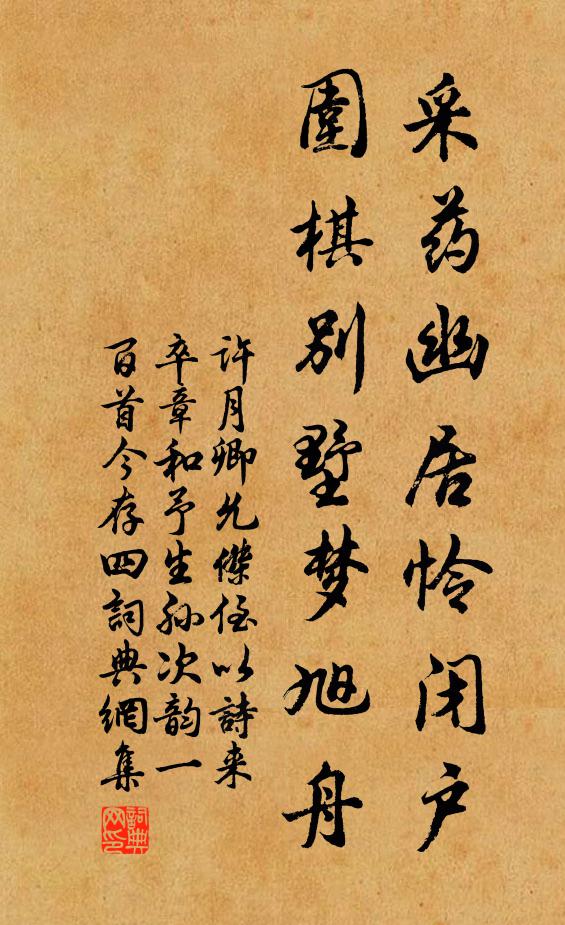 采药幽居怜闭户
圍棋别墅梦旭舟
许月卿允傑侄以詩来
卒章和予生孙次韵一
百首今存四詞典網集
詞典网印